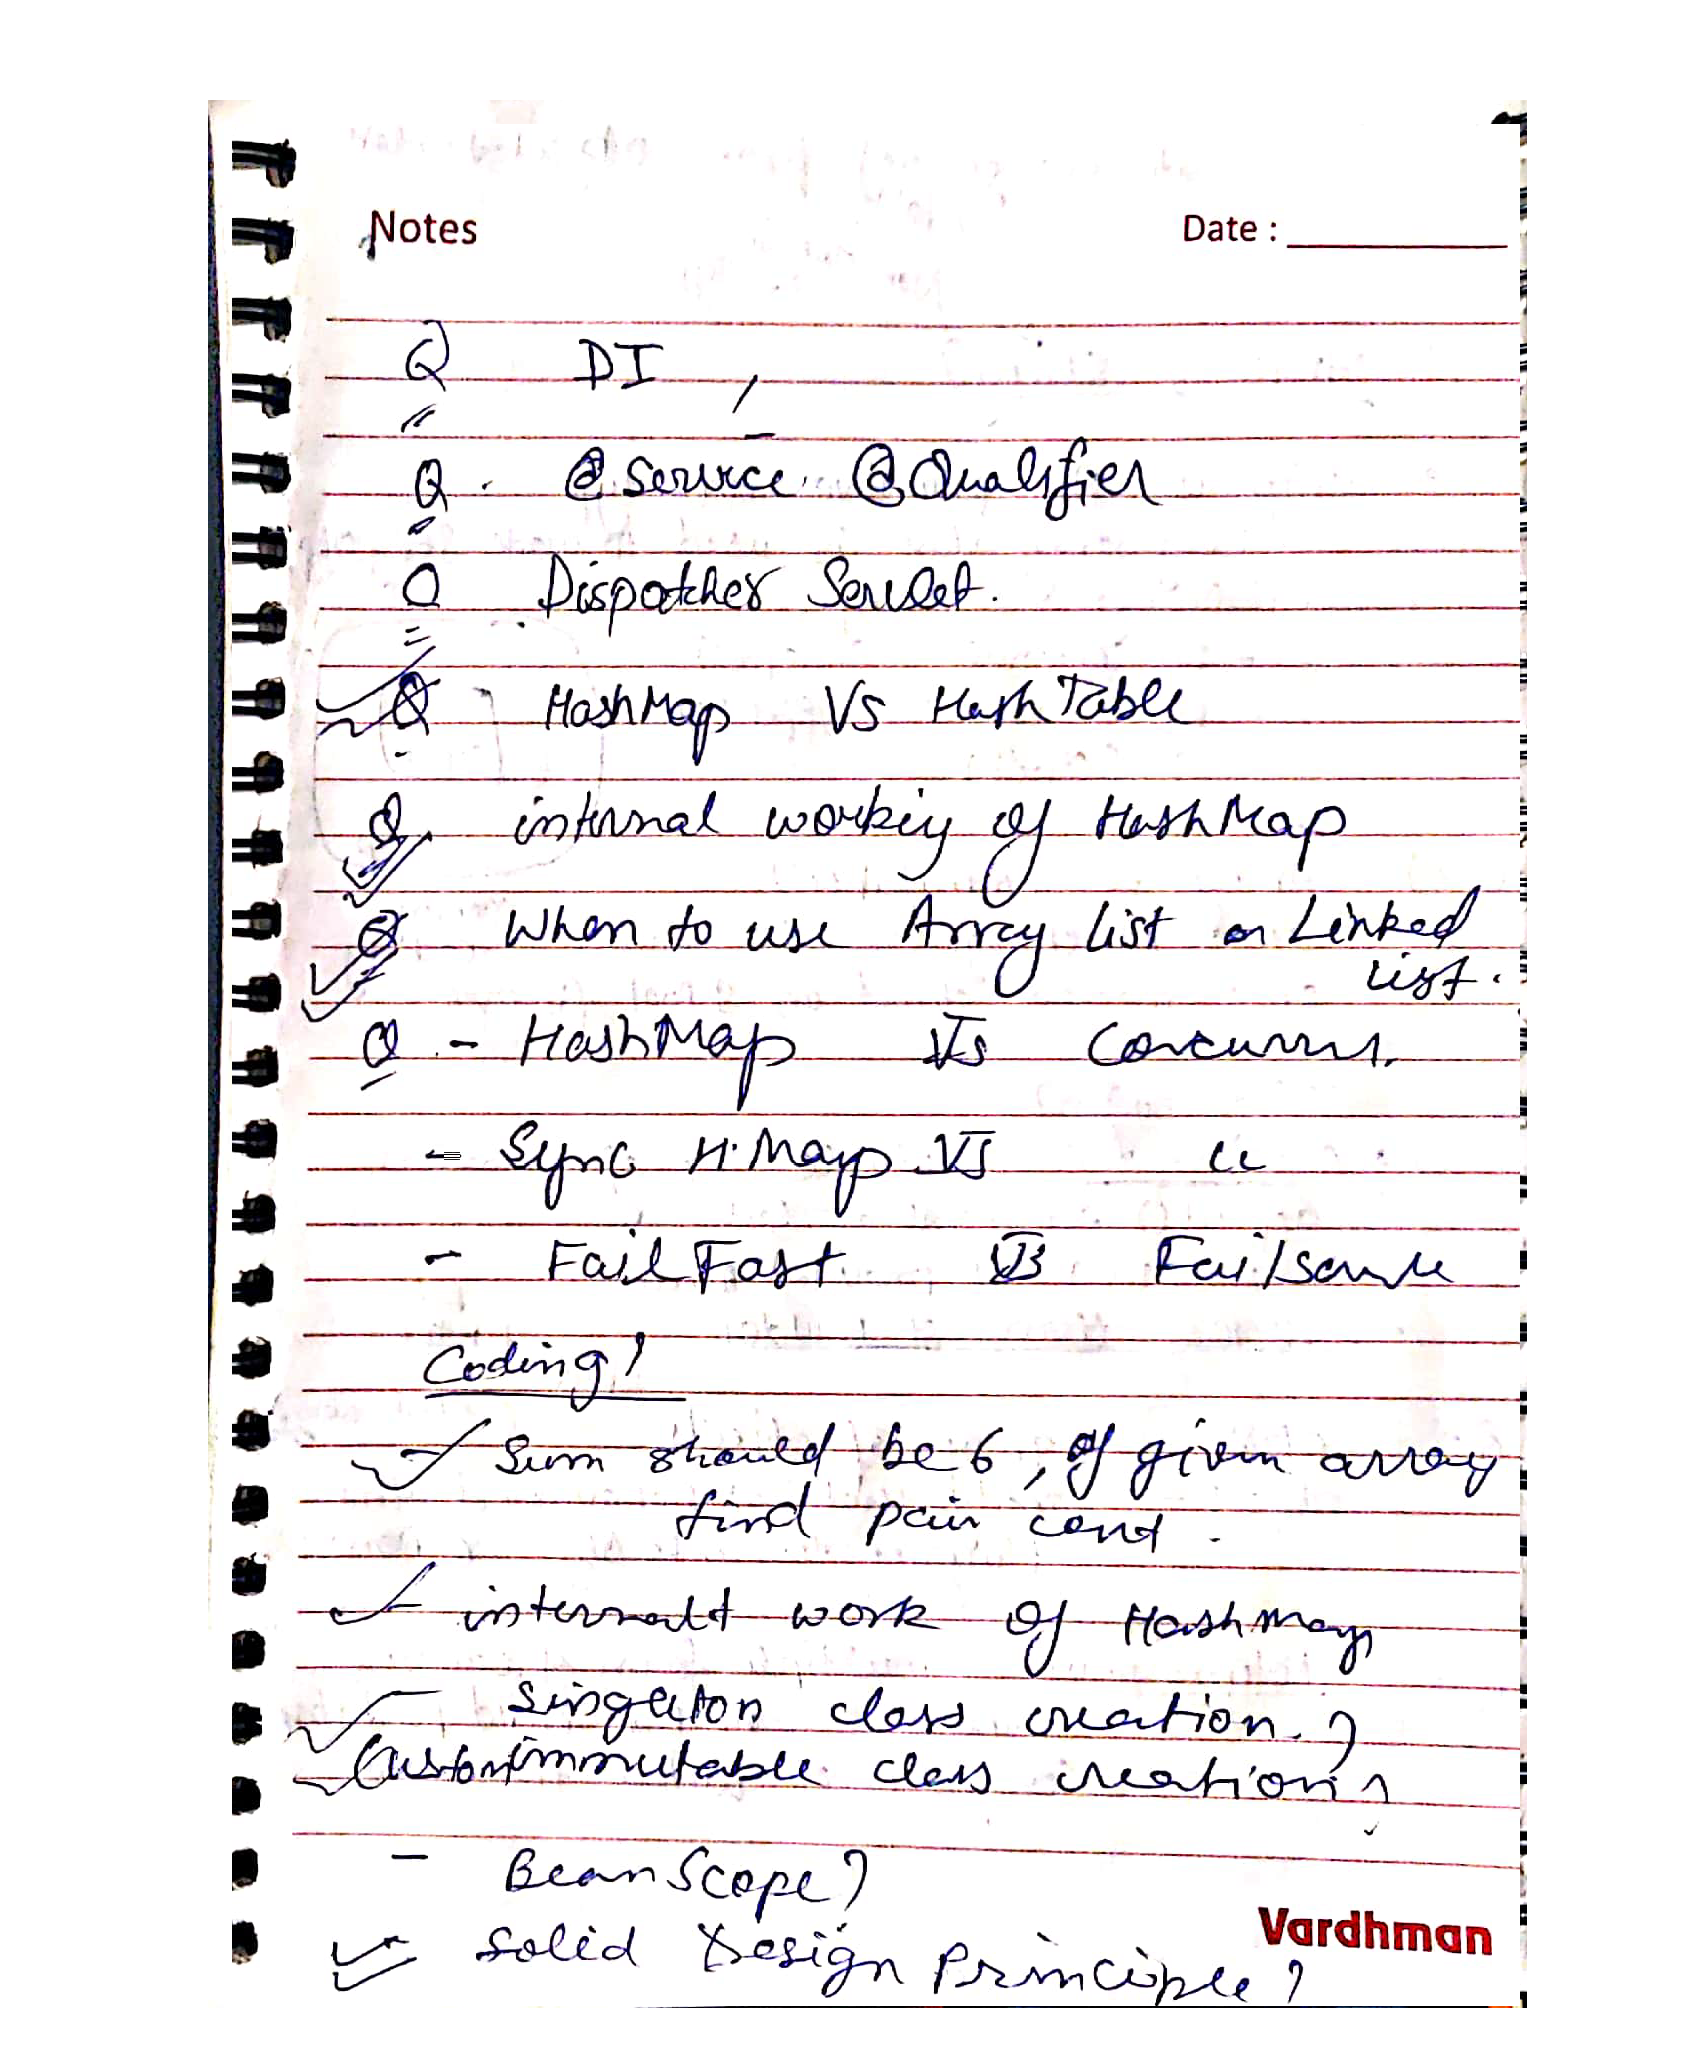 Notes Date :
Q DI ,
Q. @Service @Qualifier
Q Dispatcher Servlet.
Q HashMap Vs HashTable
Q internal working of HashMap
Q When to use Array list or Linked
list.
Q - HashMap Vs
- Sync H.Map Vs "
- Fail Fast Vs
Coding!
- Sum should be 6, of given array
find pair
- internalt work of Hashmap
- Singleton class creation ?
Custom immutable class creation ?
- Bean Scope ?
- Solid Design Principle ?
Vardhman